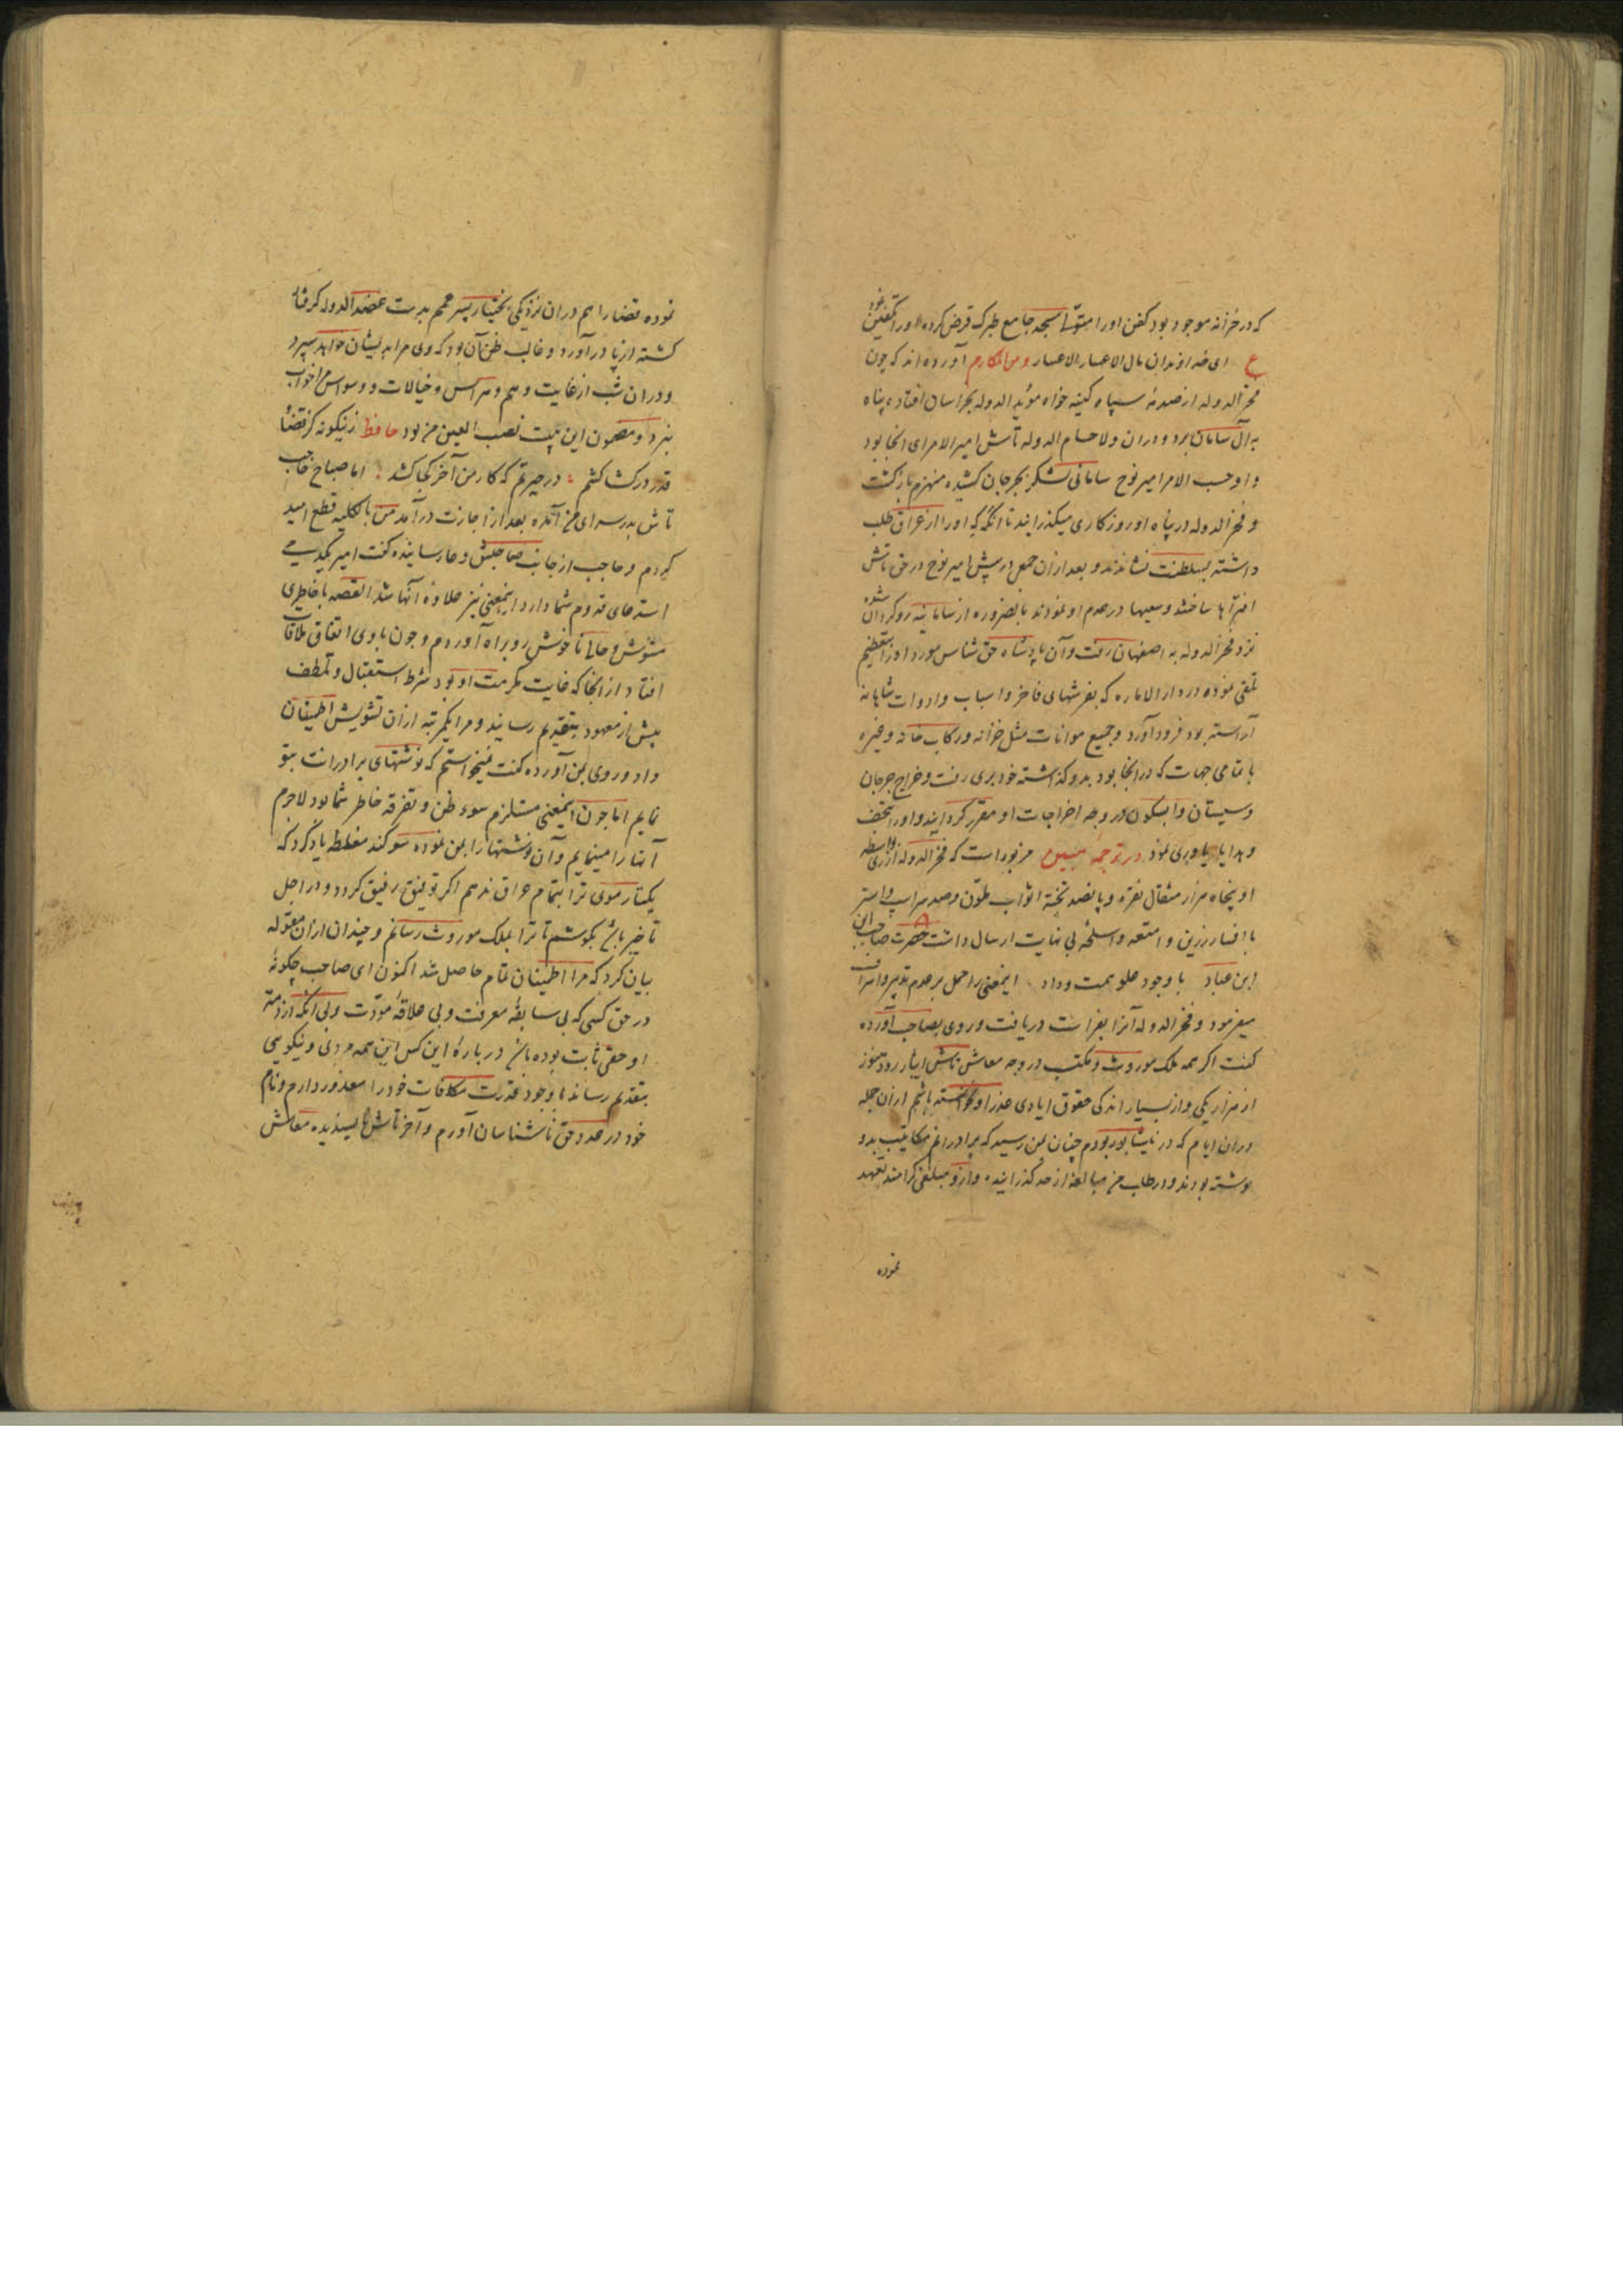 که در خزانه موجود بود کفن او را از متولی مسجد جامع طبرک قرض کرده او را تکفین نمود
ع ای خداوندان مال الاعتبار الاعتبار ومن المکارم آورده اند که چون
فخر الدوله از صدمهٔ سپاه کینه خواه مؤید الدوله بخراسان افتاده پناه
به آل سامان برد و دران ولا حسام الدوله تاش امیر الامرای انجا بود
و او حسب الامر امیر نوح سامانی لشکر بجرجان کشیده منهزم بازگشت
و فخر الدوله در پناه او روزکاری میکذرانید تا انکه که او را از عراق طلب
داشته بسلطنت نشاندند و بعد ازان جمعی در پیش امیر نوح در حق تاش
افترآ ها ساختند و سعیها در هدم او نمودند بالضروره از سامانیه روکردان شده
نزد فخر الدوله به اصفهان رفت و آن پادشاه حق شناس مورد او را بتعظیم
تلقی نموده در دار الاماره که بفرشهای فاخر و اسباب و ادوات شاهانه
آراسته بود فرود آورد و جمیع موانات مثل خزانه و رکاب خانه و غیره
با تمامی جهات که در انجا بود بدو کذاشته خود بری رفت و خراج جرجان
و سیستان و ابسکون در وجه اخراجات او مقرر کردانید و او را بتحف
و هدایا یاوری نمود در ترجمه یمینی مزبور است که فخر الدوله از ری بواسطه
او پنجاه هزار مثقال نقره و پانصد تخته اثواب ملون و صد سر اسپ و استر
با افسار زرین و امتعه و اسلحهٔ بی نهایت ارسال داشت حضرت صاحب ابن
ابن عباد با وجود علو همت و داد اینمعنی را حمل بر عدم تدبیر و اسراف
میفرمود و فخر الدوله آنرا بفراست دریافت و روی بصاحب آورده
کفت اکر همه ملک موروث و مکتسب در وجه معاش تاش ایثار رود هنوز
از هزار یکی و از بسیار اندکی حقوق ایادی عذر او نخواسته باشم ازان جمله
دران ایام که در نیشابور بودم چنان بمن رسید که برادرانم مکاتیب بدو
نوشته بودند و در طلب من مبالغه از حد کذرانیده و ازو مبلغی کرامند تعهد
نموده
نموده قضا را هم دران نزدیکی بختیار پسر عمم بدست عضد الدوله کرفتار
کشته از پا در آورد و غالب ظن آن بود که وی مرا بدیشان خواهد سپرد
و دران شب از غایت وهم و هراس و خیالات و وسواس مرا خواب
نبرد و مضمون این بیت نصب العین من بود حافظ زینکونه کز قضا
قدر درکشاکشم در حیرتم که کار من آخر کجا کشد اما صباح حاجب
تاش بدر سرای من آمده بعد از اجازت در آمد من بالکلیه قطع امید
کردم و حاجب از جانب صاحبش دعا رسانیده کفت امیر یکدمی
استدعای قدوم شما دارد اینمعنی نیز علاوهٔ آنها شد القصه با خاطری
مشوش و حالی ناخوش رو براه آوردم و چون با وی اتفاق ملاقات
افتاد از انجا که غایت مکرمت او بود شرط استقبال و تلطف
بیش از معهود بتقدیم رسانید و مرا یکمرتبه ازان تشویش اطمینان
داد و روی بمن آورده کفت نمیخواستم که نوشتهای برادرانت بتو
نمایم اما چون اینمعنی مستلزم سوء ظن و تفرقه خاطر شما بود لاجرم
آنها را مینمایم و آن نوشتها را بمن نموده سوکند مغلظه یاد کرد که
یکتار موی ترا بتمام عراق ندهم اکر توفیق رفیق کردد و در اجل
تاخیر باشد بکوشم تا ترا بملک موروث رسانم و چندان ازان مقوله
بیان کرد که مرا اطمینان تمام حاصل شد اکنون ای صاحب چکونه
در حق کسی که بی سابقهٔ معرفت و بی علاقهٔ مودّت و بی انکه از ذمته
او حقی ثابت بوده باشد در بارهٔ این کس این همه مردمی و نیکویی
بتقدیم رساند با وجود قدرت مکافات خود را معذور دارم و نام
خود در عدد حق ناشناسان آورم و آخر تاش پسندیده معاش